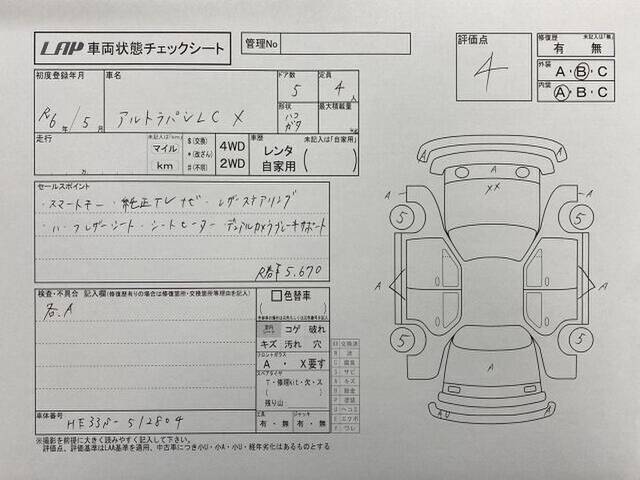 LAP 車両状態チェックシート
管理No
評価点
4
修復歴 未記入は「無」
有 ・ 無
外装 A・B・C
内装 A・B・C
初度登録年月
R6年/5月
車名
アルトラパンLC X
ドア数
5
定員
4人
形状
ハコ
ガタ
最大積載量
kg
走行
未記入は「km」
マイル
km
万
$(交換)
*(改ざん)
#(不明)
4WD
2WD
車歴 未記入は「自家用」
レンタ
自家用
セールスポイント
・スマートキー ・純正TVナビ ・レザーステアリング
・ハーフレザーシート ・シートヒーター ・デュアルカメラブレーキサポート
R券¥5.670
検査・不具合 記入欄(修復歴有りの場合は修復箇所・交換箇所等理由を記入)
各.A
色替車
コゲ 破れ
キズ 汚れ 穴
フロントガラス
A ・ X要す
スペアタイヤ
T・修理kit・欠・ス
残り山
工具
有・無
ジャッキ
有・無
XX 交換済
W 波
C 腐食
S サビ
A キズ
P 塗装
U ヘコミ
E エクボ
Y ワレ
車体番号
HE33S-512804
※撮影を前提に大きく読みやすく記入して下さい。
評価点、評価基準はLAA基準を適用、中古車につき小U・小A・小U・経年劣化はあるものとする
A
A
A
XX
A
A
5
5
A
A
5
5
A
AU
A